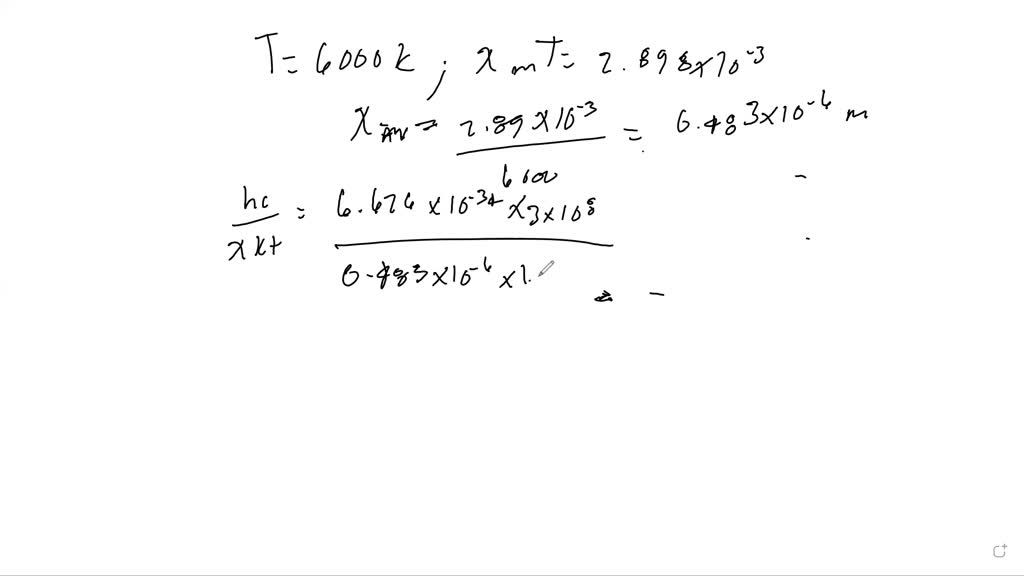 T = 6000k ; x m T = 2.898x10^-3
x m = 2.89 x10^-3 / 6000 = 0.483x10^-6 m
hc / x kt = 6.626 x10^-34 x 3x10^8 / 0.483x10^-6 x 1.